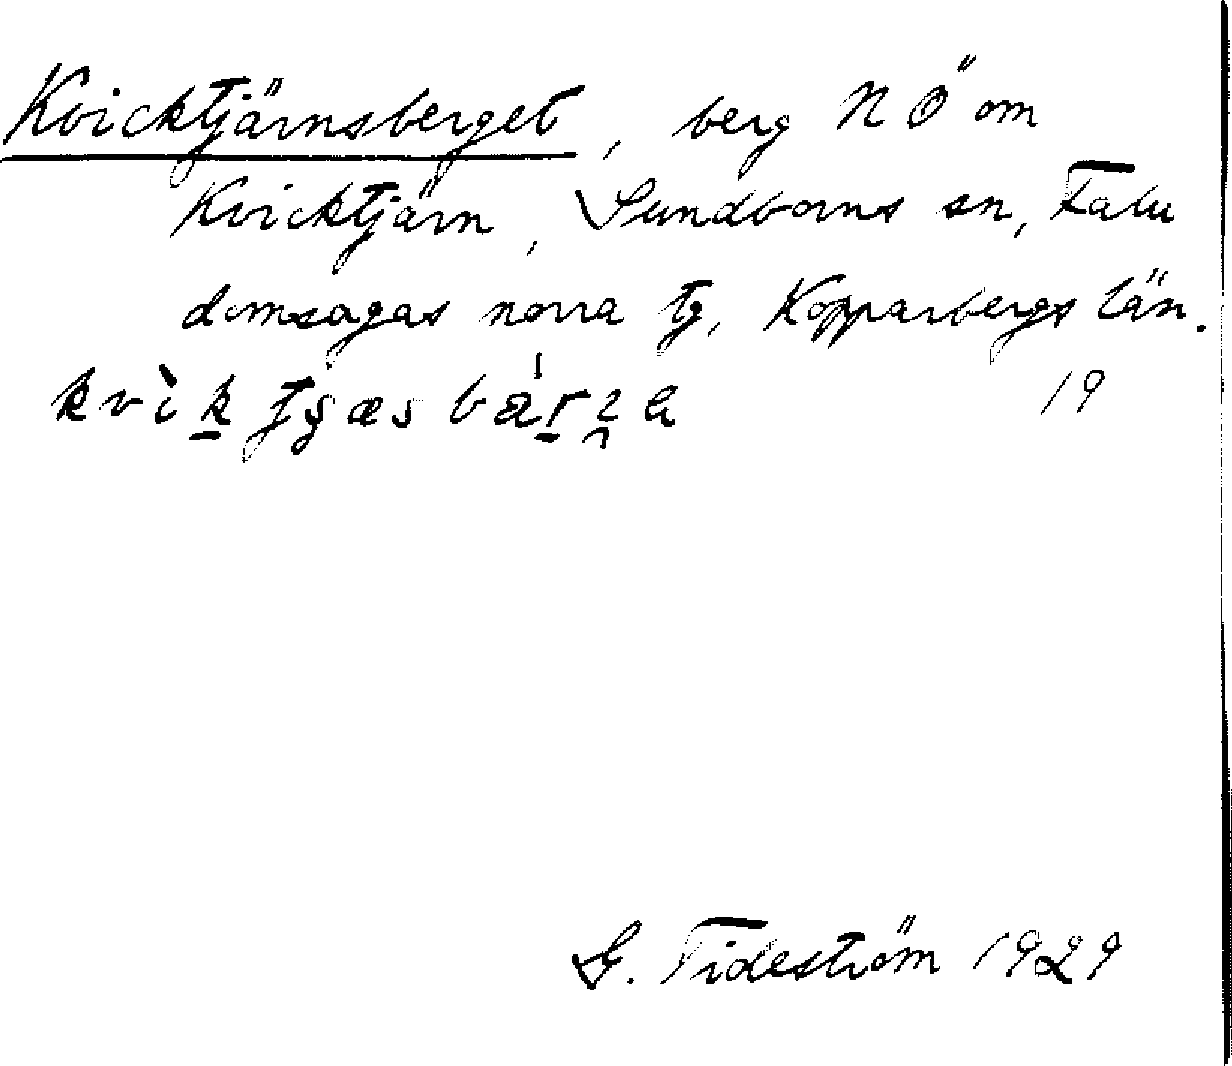 Kvicktjärnsberget, berg NÖ om
Kvicktjärn, Sundborns sn, Falu
domsagas norra tg, Kopparbergs län.
19
G. Tideström 1929